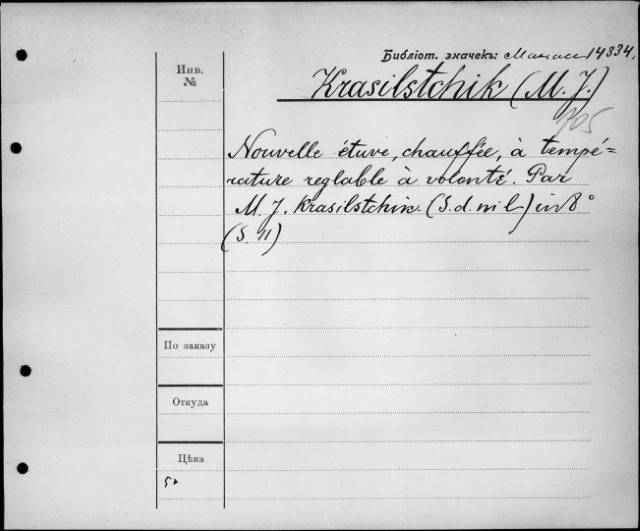 Библіот. значекъ: 14334.
Инв.
№
Krasilstchik (M. J.)
705
Nouvelle étuve, chauffée, à tempé=
rature reglable à volonté. Par
M. J. Krasilstchik. (S. d. ni l.) in 8°
(S. 11)
По заказу
Откуда
Цѣна